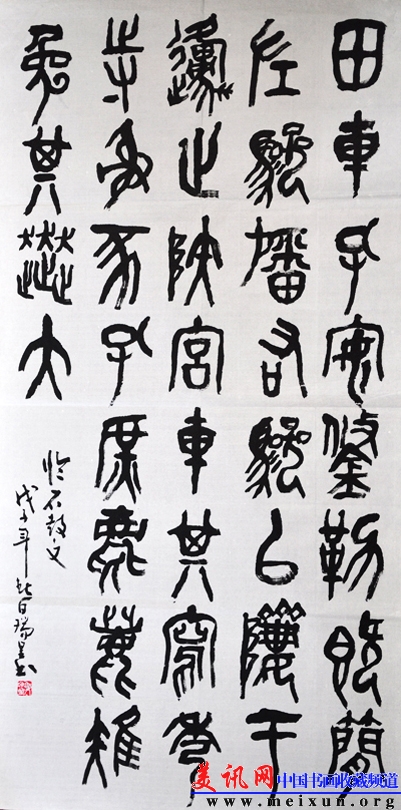 田車孔安鋚勒既簡
左驂旛右驂以隮于
邍止陜宮車其寫秀
寺射豕孔庶麀鹿雉
兔其奔大
临石鼓文
戊子年
美讯网 中国书画收藏频道
www.meixun.org